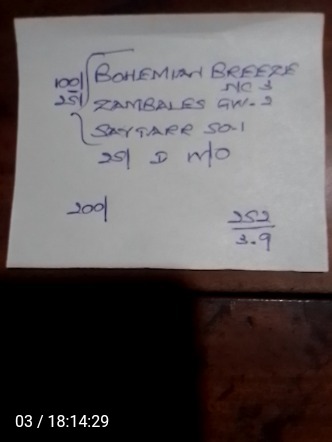 100/ BOHEMIAN BREEZE
NC 3
25/ ZAMBALES GW-2
SAYTARR SO-1
25/ D M/O
200/
252
3.9
03 / 18:14:29